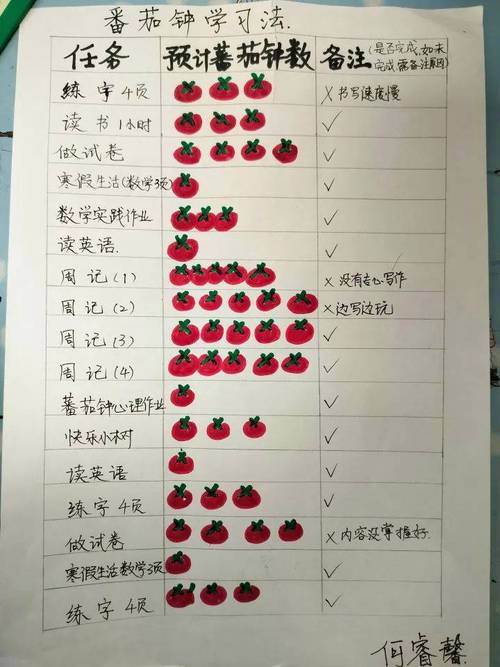 番茄钟学习法.
任务 预计番茄钟数 备注(是否完成,如未完成,需备注原因)
练字4页 × 书写速度慢
读书1小时 ✓
做试卷 ✓
寒假生活(数学3项) ✓
数学实践作业 ✓
读英语. ✓
周记(1) × 没有专心写作
周记(2) × 边写边玩
周记(3) ✓
周记(4) ✓
番茄钟心理作业 ✓
快乐小木对 ✓
读英语 ✓
练字4页 ✓
做试卷 × 内容没掌握好.
寒假生活数学3项 ✓
练字4页 ✓
何睿馨